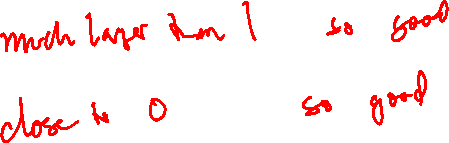 much larger than 1 so good
close to 0 so good